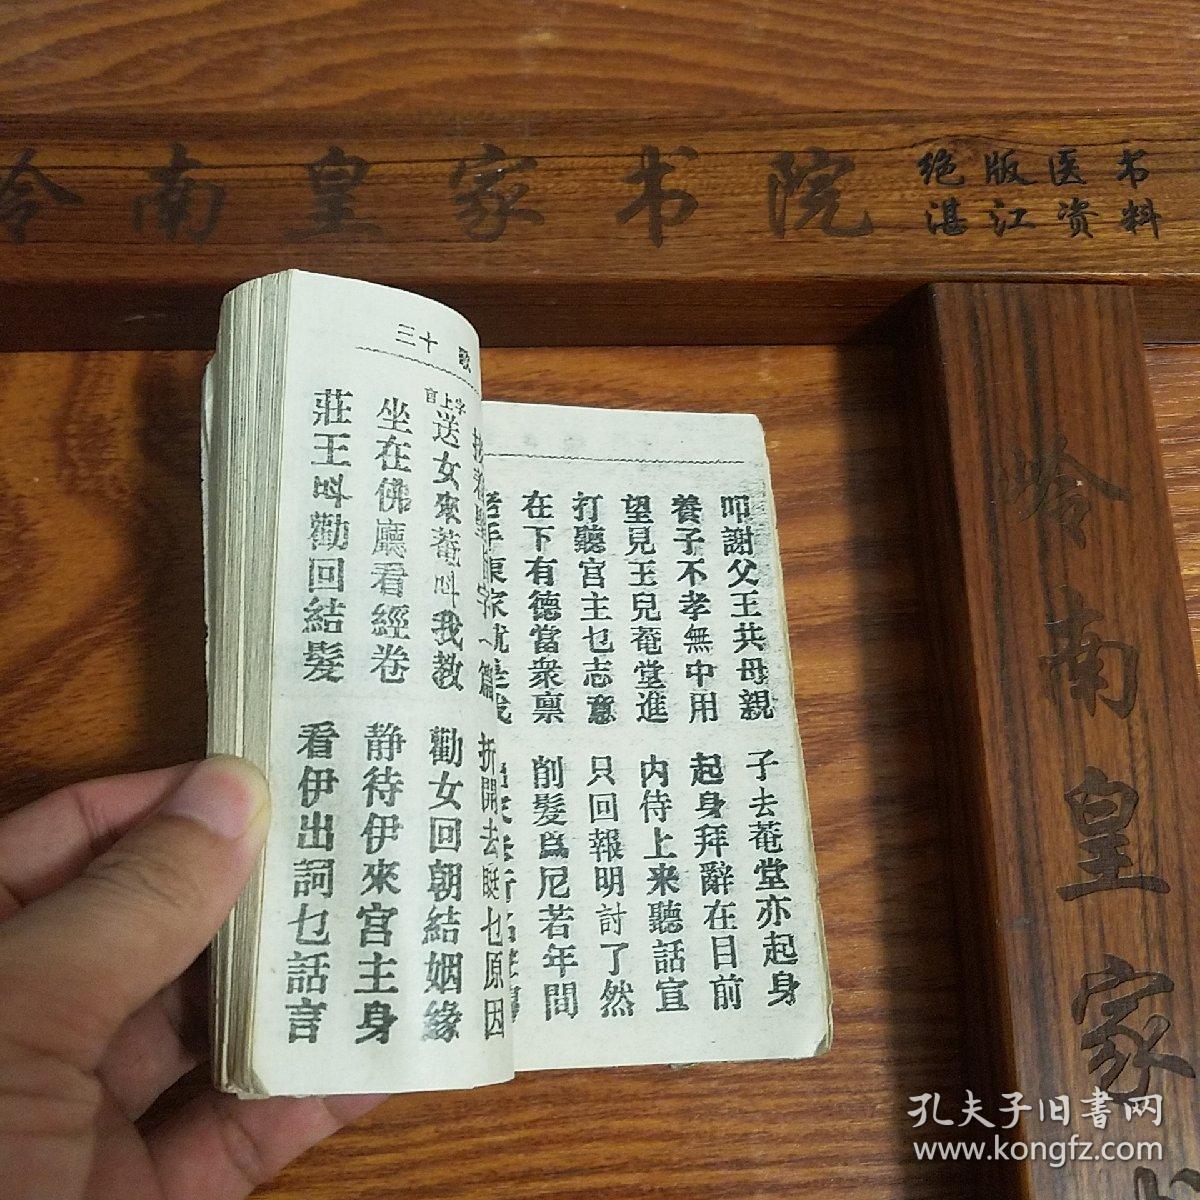 岭南皇家书院
绝版医书
湛江资料
岭南皇家
叩謝父王共母親 子去菴堂亦起身
養子不孝無中用 起身拜辭在目前
望見王兒菴堂進 内侍上来聽話宣
打聽宫主乜志意 只回報明討了然
在下有德當衆禀 削髮爲尼若年間
三十 歌
字上
篇 折開去 乜原因
送女來菴呌我教 勸女回朝結姻緣
坐在佛廳看經卷 静待伊來宫主身
莊王呌勸回結髮 看伊出詞乜話言
孔夫子旧书网
www.kongfz.com